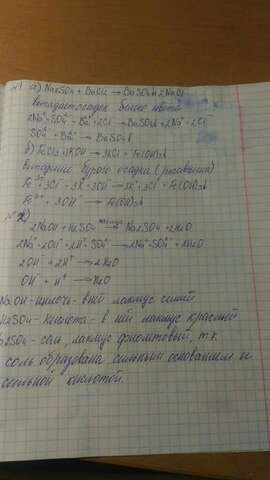 №1 a) Na2SO4 + BaCl2 → BaSO4↓ + 2NaCl
Выпадает осадок белого цвета
2Na⁺ + SO4²⁻ + Ba²⁺ + 2Cl⁻ → BaSO4↓ + 2Na⁺ + 2Cl⁻
SO4²⁻ + Ba²⁺ → BaSO4↓
б) FeCl3 + 3KOH → 3KCl + Fe(OH)3↓
Выпадение бурого осадка (ржавчина)
Fe³⁺ + 3Cl⁻ + 3K⁺ + 3OH⁻ → 3K⁺ + 3Cl⁻ + Fe(OH)3↓
Fe³⁺ + 3OH⁻ → Fe(OH)3↓
№2)
2NaOH + H2SO4 → Na2SO4 + 2H2O
2Na⁺ + 2OH⁻ + 2H⁺ + SO4²⁻ → 2Na⁺ + SO4²⁻ + 2H2O
2OH⁻ + 2H⁺ → 2H2O
OH⁻ + H⁺ → H2O
NaOH - щелочь - в ней лакмус синий
H2SO4 - кислота - в ней лакмус красный
Na2SO4 - соль, лакмус фиолетовый, т.к.
соль образована сильным основанием и
сильной кислотой.